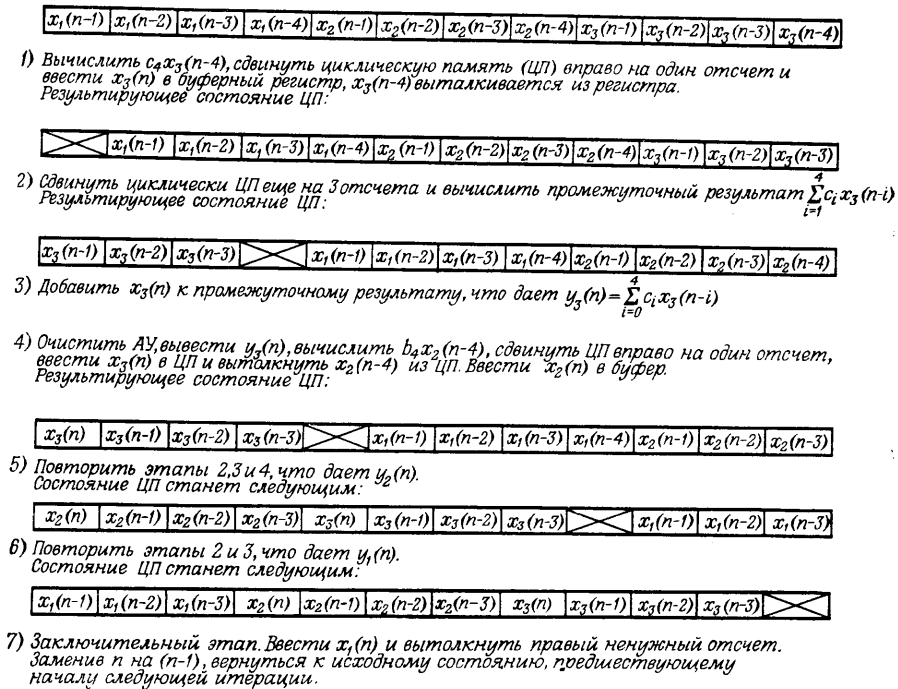 x₁(n-1) x₁(n-2) x₁(n-3) x₁(n-4) x₂(n-1) x₂(n-2) x₂(n-3) x₂(n-4) x₃(n-1) x₃(n-2) x₃(n-3) x₃(n-4)
1) Вычислить c₄x₃(n-4), сдвинуть циклическую память (ЦП) вправо на один отсчет и
ввести x₃(n) в буферный регистр, x₃(n-4) выталкивается из регистра.
Результирующее состояние ЦП:
x₁(n-1) x₁(n-2) x₁(n-3) x₁(n-4) x₂(n-1) x₂(n-2) x₂(n-3) x₂(n-4) x₃(n-1) x₃(n-2) x₃(n-3)
2) Сдвинуть циклически ЦП еще на 3 отсчета и вычислить промежуточный результат ∑⁴ᵢ₌₁ cᵢx₃(n-i)
Результирующее состояние ЦП:
x₃(n-1) x₃(n-2) x₃(n-3) x₁(n-1) x₁(n-2) x₁(n-3) x₁(n-4) x₂(n-1) x₂(n-2) x₂(n-3) x₂(n-4)
3) Добавить x₃(n) к промежуточному результату, что дает y₃(n)=∑⁴ᵢ₌₀ cᵢx₃(n-i)
4) Очистить АУ, вывести y₃(n), вычислить b₄x₂(n-4), сдвинуть ЦП вправо на один отсчет,
ввести x₃(n) в ЦП и вытолкнуть x₂(n-4) из ЦП. Ввести x₂(n) в буфер.
Результирующее состояние ЦП:
x₃(n) x₃(n-1) x₃(n-2) x₃(n-3) x₁(n-1) x₁(n-2) x₁(n-3) x₁(n-4) x₂(n-1) x₂(n-2) x₂(n-3)
5) Повторить этапы 2, 3 и 4, что дает y₂(n).
Состояние ЦП станет следующим:
x₂(n) x₂(n-1) x₂(n-2) x₂(n-3) x₃(n) x₃(n-1) x₃(n-2) x₃(n-3) x₁(n-1) x₁(n-2) x₁(n-3)
6) Повторить этапы 2 и 3, что дает y₁(n).
Состояние ЦП станет следующим:
x₁(n-1) x₁(n-2) x₁(n-3) x₂(n) x₂(n-1) x₂(n-2) x₂(n-3) x₃(n) x₃(n-1) x₃(n-2) x₃(n-3)
7) Заключительный этап. Ввести x₁(n) и вытолкнуть правый ненужный отсчет.
Заменив n на (n-1), вернуться к исходному состоянию, предшествующему
началу следующей итерации.